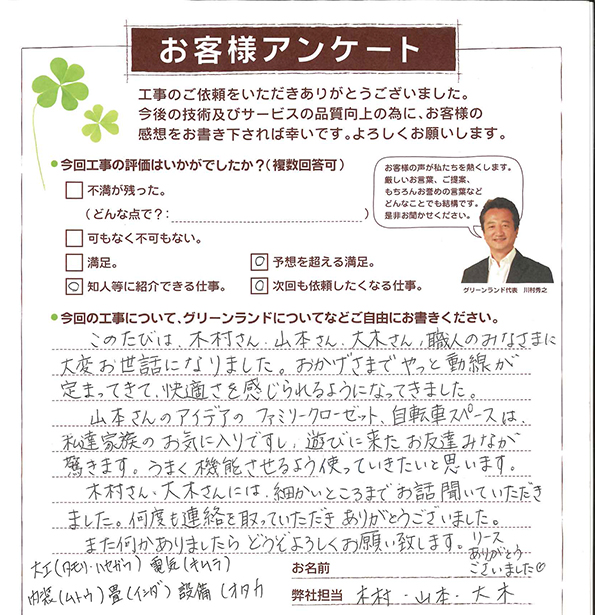 お客様アンケート
工事のご依頼をいただきありがとうございました。
今後の技術及びサービスの品質向上の為に、お客様の
感想をお書き下されば幸いです。よろしくお願いします。
今回工事の評価はいかがでしたか?(複数回答可)
不満が残った。
(どんな点で?: )
可もなく不可もない。
満足。
予想を超える満足。
知人等に紹介できる仕事。
次回も依頼したくなる仕事。
お客様の声が私たちを熱くします。
厳しいお言葉、ご提案、
もちろんお誉めの言葉など
どんなことでも結構です。
是非お聞かせください。
グリーンランド代表 川村秀之
今回の工事について、グリーンランドについてなどご自由にお書きください。
このたびは、木村さん、山本さん、大木さん、職人のみなさまに
大変お世話になりました。おかげさまでやっと動線が
定まってきて、快適さを感じられるようになってきました。
山本さんのアイデアのファミリークローゼット、自転車スペースは、
私達家族のお気に入りですし、遊びに来たお友達みなが
驚きます。うまく機能させるよう使っていきたいと思います。
木村さん・大木さんには、細かいところまでお話聞いていただき
ました。何度も連絡を取っていただきありがとうございました。
また何かありましたらどうぞよろしくお願い致します。
リース
ありがとう
ございました♡
大工(タモリ・ハセガワ) 電気(キムラ)
内装(ムトウ) 畳(イシダ) 設備(オタカ
お名前
弊社担当 木村・山本・大木